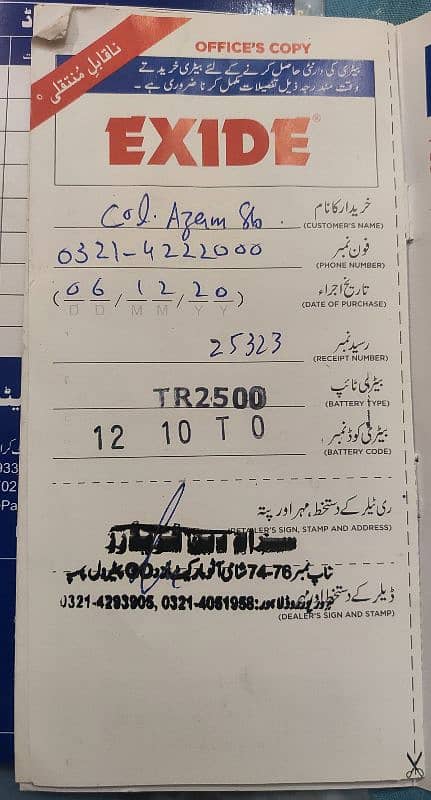 ناقابلِ مُنتقلی
OFFICE'S COPY
بیٹری کی وارنٹی حاصل کرنے کے لئے بیٹری خریدتے
وقت مندرجہ ذیل تفصیلات مکمل کرنا ضروری ہے۔
EXIDE®
Col. Azam Sb. خریدار کا نام
(CUSTOMER'S NAME)
0321-4222000 فون نمبر
(PHONE NUMBER)
(06/12/20) تاریخ اجراء
D D M M Y Y (DATE OF PURCHASE)
25323 رسید نمبر
(RECEIPT NUMBER)
TR2500 بیٹری ٹائپ
(BATTERY TYPE)
12 10 T O بیٹری کوڈ نمبر
(BATTERY CODE)
ری ٹیلر کے دستخط، مہر اور پتہ
(RETAILER'S SIGN, STAMP AND ADDRESS)
74-76
0321-4293905, 0321-4051958: ڈیلر کے دستخط
(DEALER'S SIGN AND STAMP)